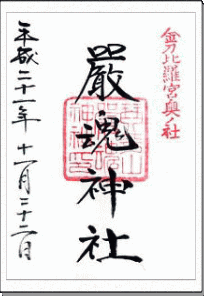 金刀比羅宮奥ノ社
嚴魂神社
平成二十一年十一月二十二日